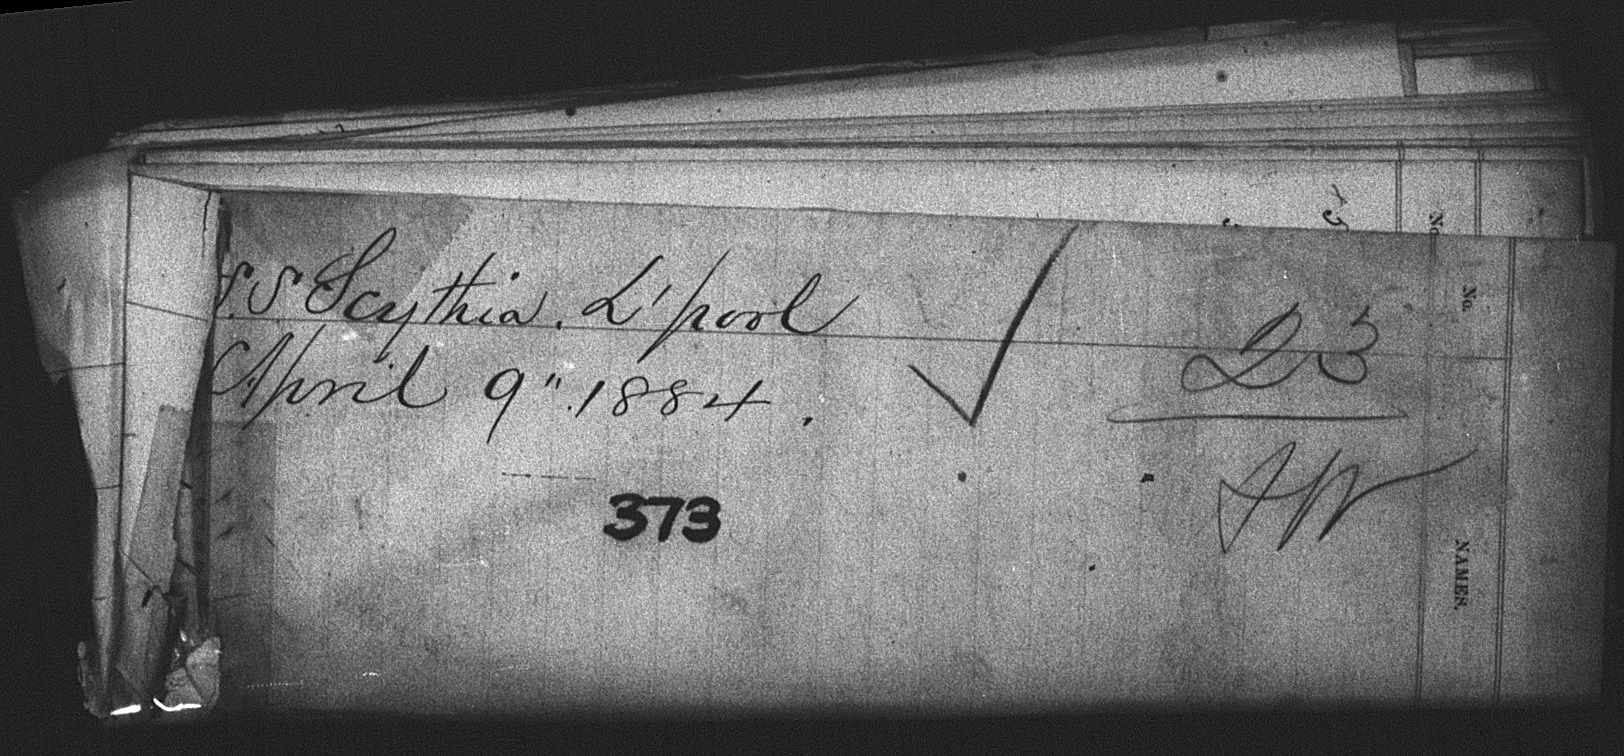 S.S Scythia. L'pool
April 9". 1884.
23
373
No.
No.
NAMES.